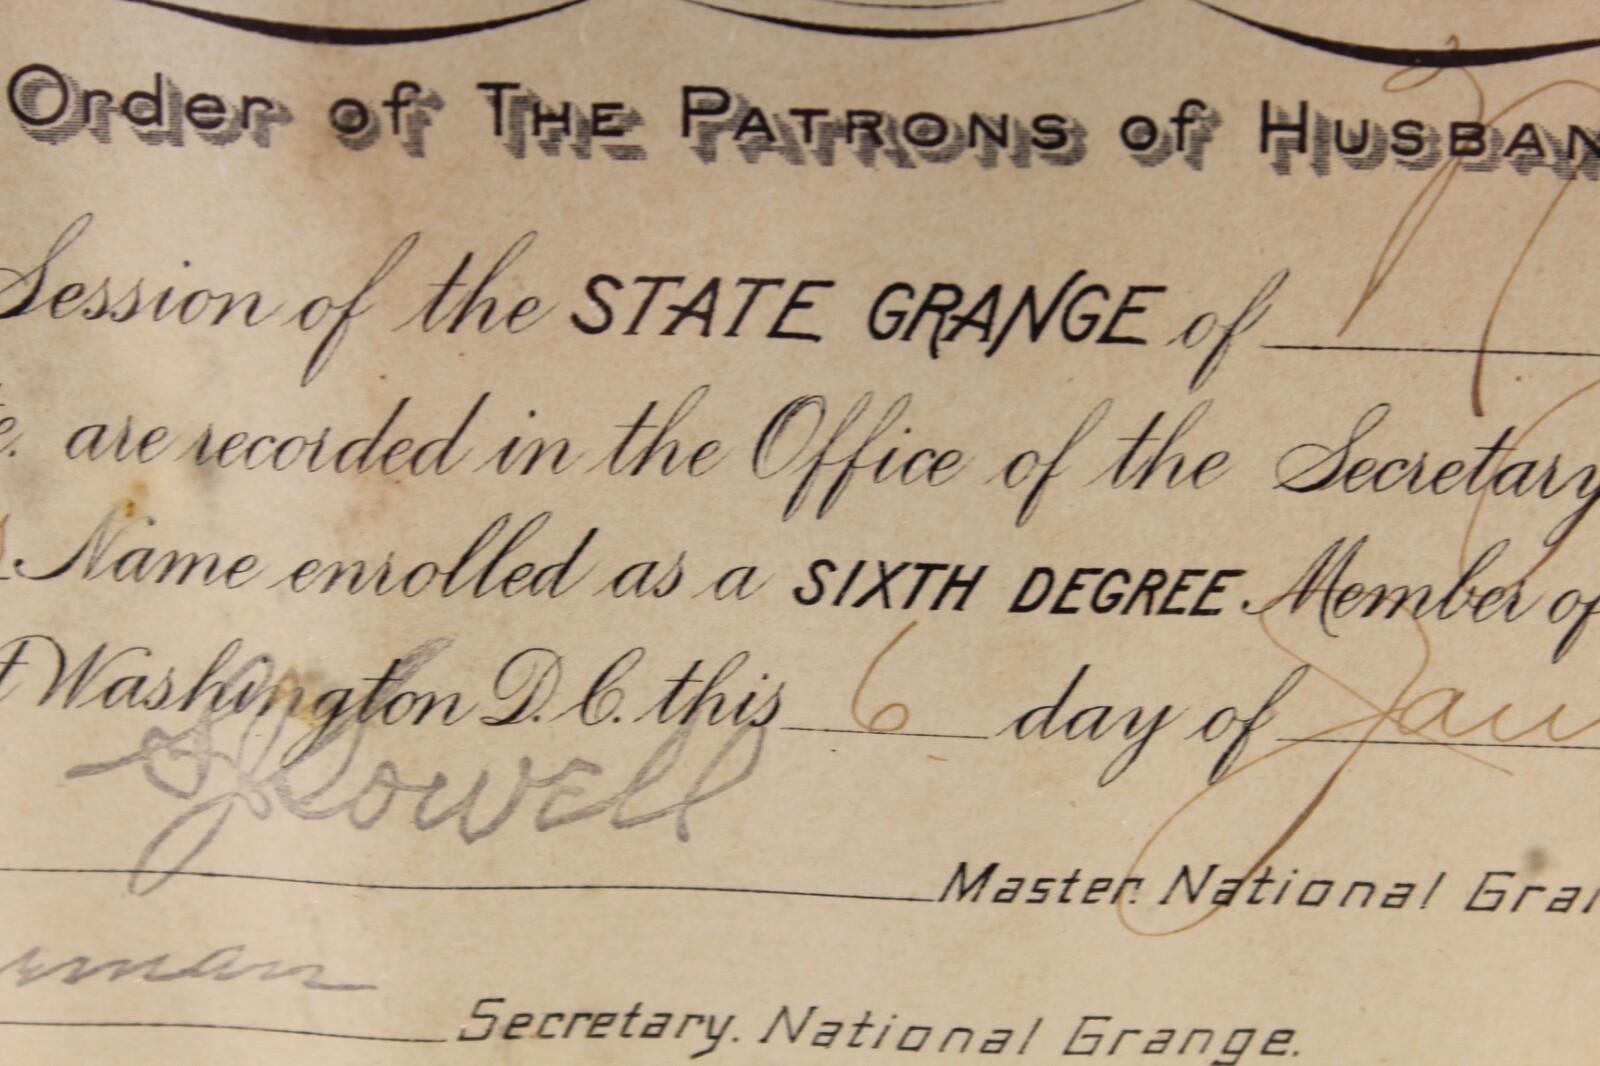 Order of THE PATRONS of HUSBAN
Session of the STATE GRANGE of
e. are recorded in the Office of the Secretary
Name enrolled as a SIXTH DEGREE Member of
t Washington D.C. this 6 day of Janu
S J Lowell
Master. National Gran
erman
Secretary. National Grange.